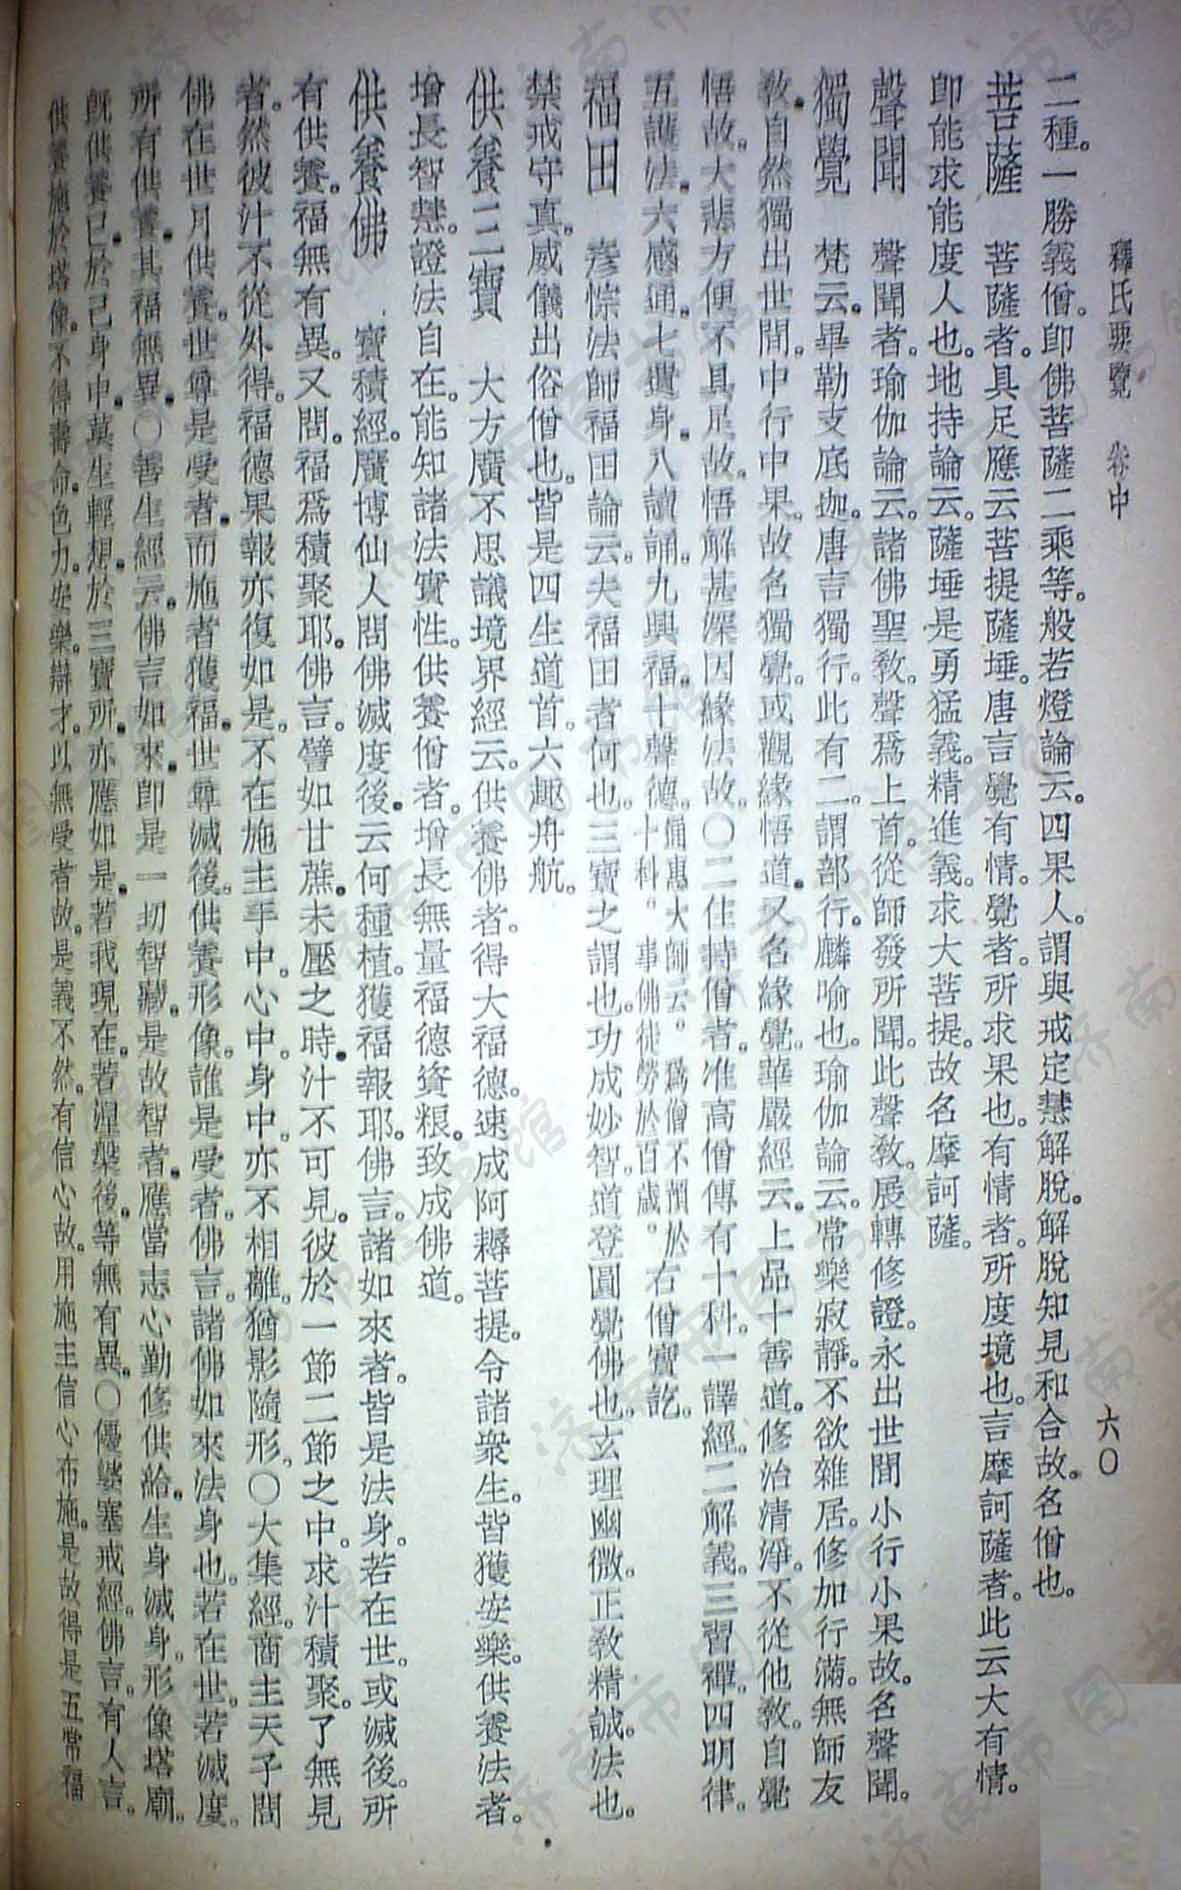 釋氏要覽　卷中　六〇
二種。一勝義僧。卽佛菩薩二乘等。般若燈論云。四果人。謂與戒定慧解脫。解脫知見和合故。名僧也。
菩薩　菩薩者。具足應云菩提薩埵。唐言覺有情。覺者。所求果也。有情者。所度境也。言摩訶薩者。此云大有情。
卽能求能度人也。地持論云。薩埵是勇猛義。精進義。求大菩提。故名摩訶薩。
聲聞　聲聞者。瑜伽論云。諸佛聖敎。聲爲上首。從師發所聞。此聲敎。展轉修證。永出世間。小行小果故。名聲聞。
獨覺　梵云。畢勒支底迦。唐言獨行。此有二。謂部行。麟喻也。瑜伽論云。常樂寂靜。不欲雜居。修加行滿。無師友
敎。自然獨出世間。中行中果。故名獨覺。或觀緣悟道。又名緣覺。華嚴經云。上品十善道。修治清淨。不從他敎。自覺
悟故。大悲方便不具足故。悟解甚深因緣法故。〇二住持僧者。准高僧傳有十科。一譯經。二解義。三習禪。四明律。
五護法。六感通。七遺身。八讀誦。九興福。十聲德。通惠大師云。爲僧不預於十科。事佛徒勞於百歲。右僧寶訖。
福田　彥悰法師福田論云。夫福田者何也。三寶之謂也。功成妙智。道登圓覺。佛也。玄理幽微。正敎精誠。法也。
禁戒守眞。威儀出俗。僧也。皆是四生道首。六趣舟航。
供養三寶　大方廣不思議境界經云。供養佛者。得大福德。速成阿耨菩提。令諸衆生。皆獲安樂。供養法者。
增長智慧。證法自在。能知諸法實性。供養僧者。增長無量福德資粮。致成佛道。
供養佛　寶積經。廣博仙人問佛滅度後。云何種植。獲福報耶。佛言。諸如來者。皆是法身。若在世。或滅後。所
有供養。福無有異。又問。福爲積聚耶。佛言。譬如甘蔗。未壓之時。汁不可見。彼於一節二節之中。求汁積聚。了無見
者。然彼汁不從外得。福德果報亦復如是。不在施主手中。心中。身中。亦不相離。猶影隨形。〇大集經。商主天子問
佛在世月供養。世尊是受者。而施者獲福。世尊滅後。供養形像。誰是受者。佛言。諸佛如來法身也。若在世。若滅度。
所有供養。其福無異。〇善生經云。佛言如來。卽是一切智藏。是故智者。應當志心勤修供給。生身滅身。形像塔廟。
旣供養已。於己身中。莫生輕想。於三寶所。亦應如是。若我現在。若涅槃後。等無有異。〇優婆塞戒經。佛言。有人言。
供養施於塔像。不得壽命。色力。安樂。辯才。以無受者故。是義不然。有信心故。用施主信心布施。是故得是五常福